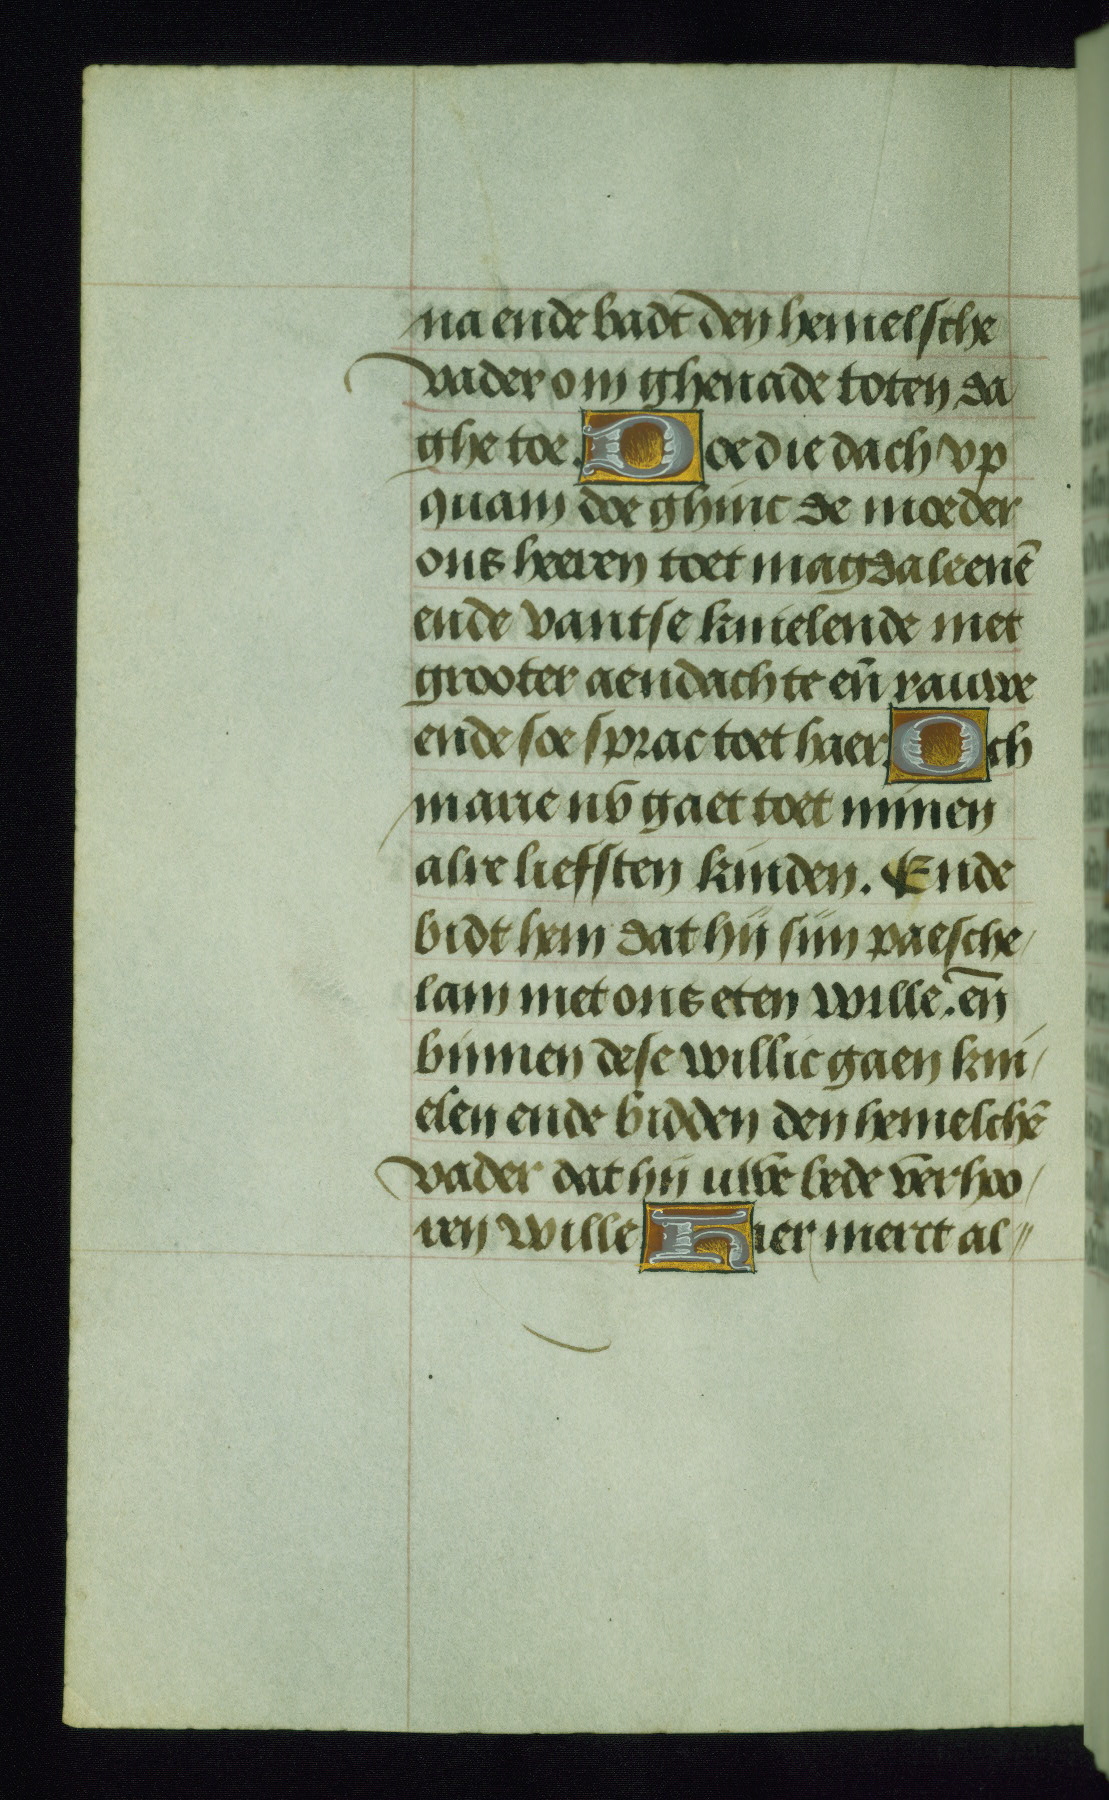 na ende badt den hemelsche
vader om ghenade toten da
ghe toe. Doe die dach vp
quam doe ghinc de moeder
ons heeren toet magdaleenē
ende vantse knielende met
grooter aendachte eñ rauwe
ende soe sprac toet haer. Och
marie nv̄ gaet toet minen
alre liefsten kinden. Ende
bidt hem dat hij sijn paesche/
lam met ons eten wille. eñ
binnen dese willic gaen kni/
elen ende bidden den hemelchē
vader dat hij uwe bede verhoo/
ren wille Hier merct al//